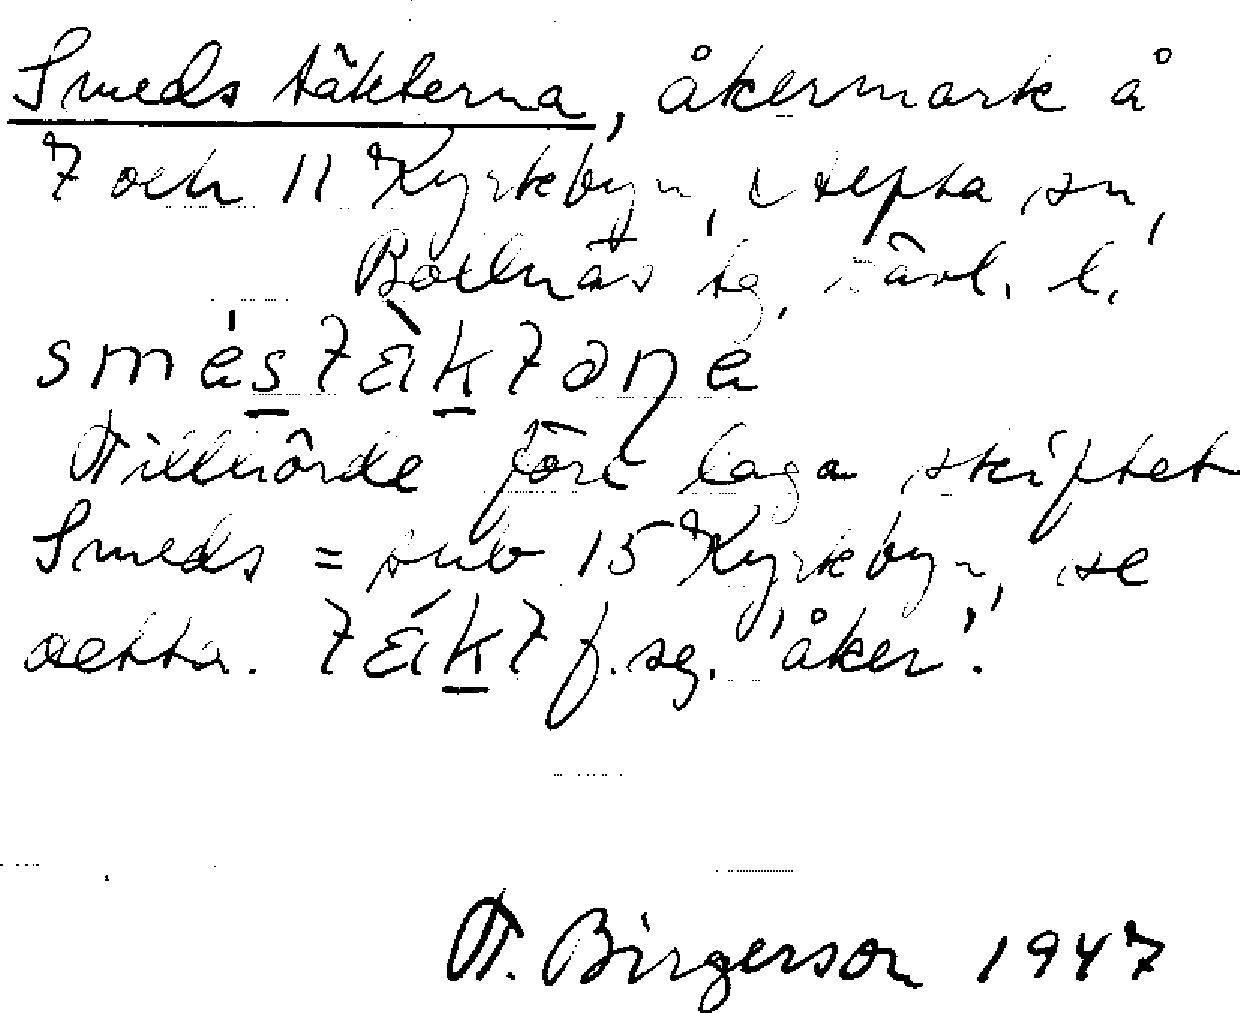 Smeds täkterna, åkermark å
7 och 11 Kyrkbyn, Alfta sn,
Bollnäs tg, Gävl. l.
Tillhörde före laga skiftet
Smeds = sub 15 Kyrkbyn, se
detta. f. sg. 'åker'.
T. Birgerson 1947